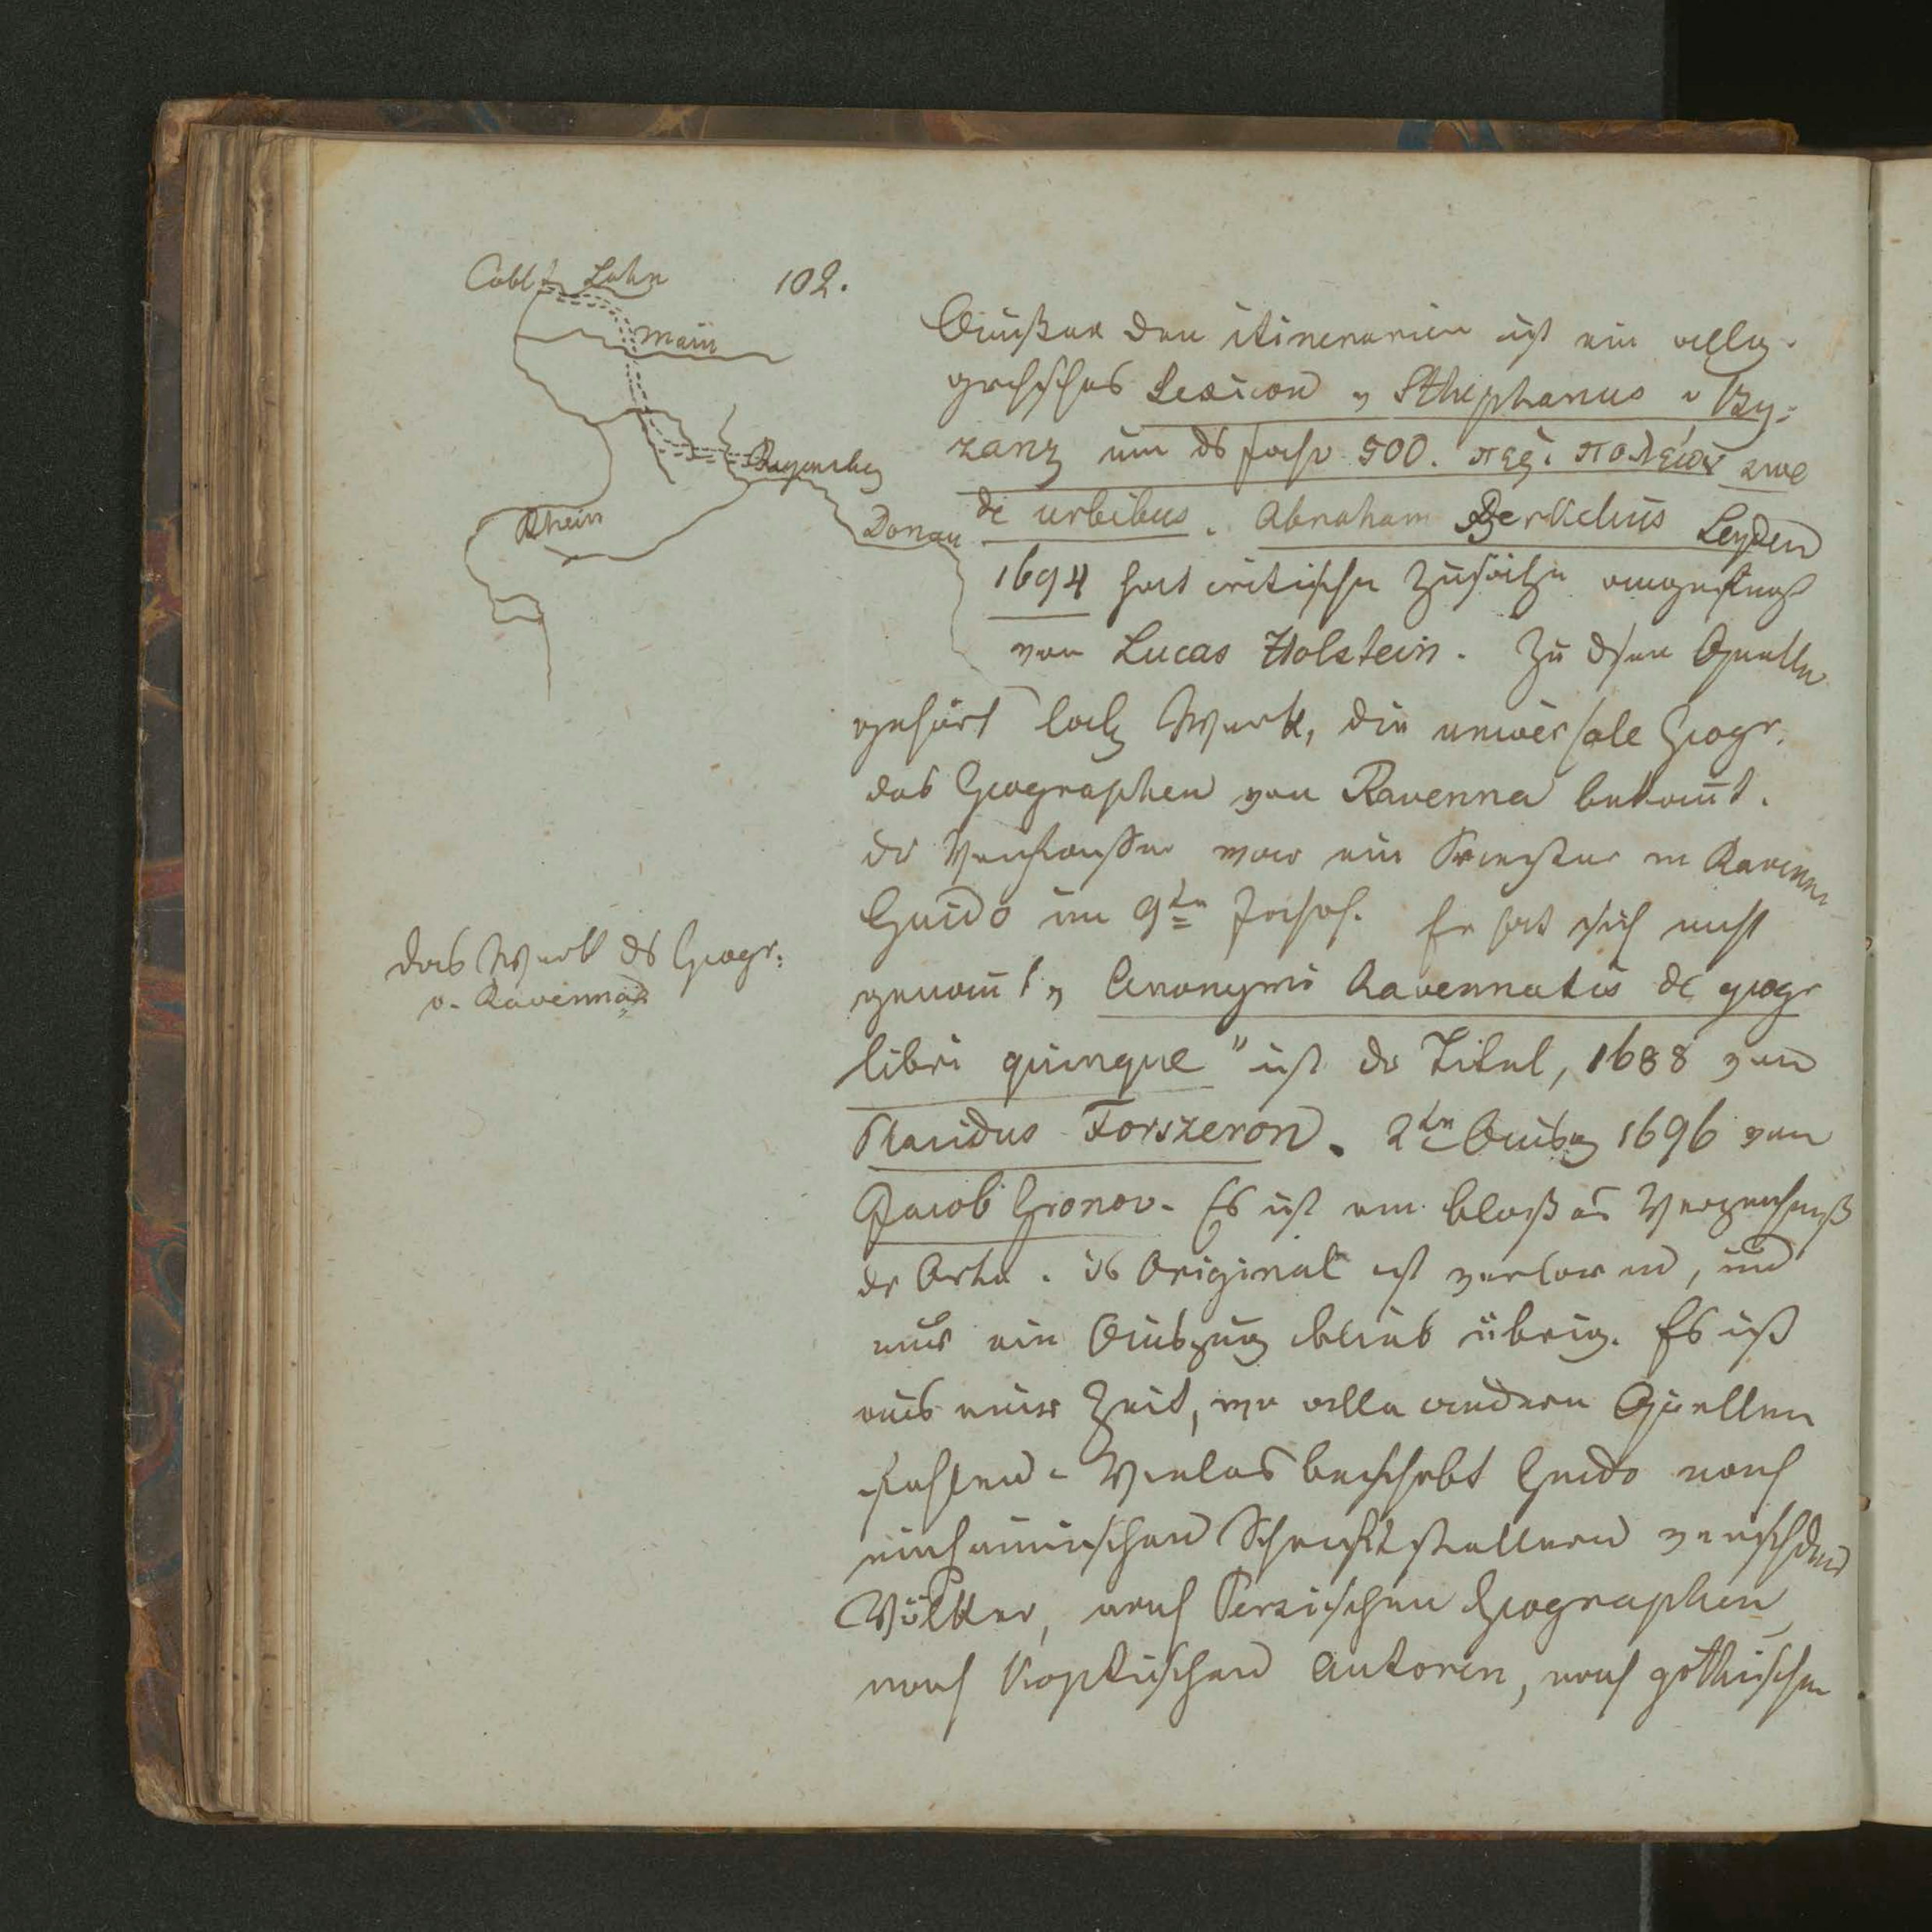 102.
Cobl. Lahn
Main
Regensbg
Rhein
Donau
Außer den itinerarien ist ein allg.
grchsches Lexicon v Sthephanus v By-
zanz um ds Jahr 500. περι πολεων sive
de urbibus. Abraham Berkelius Leyden
1694 hat critische Zusätze
von Lucas Holstein. Zu dsen Quellen
gehört Werk, die universale Geogr.
des Geographen von Ravenna bekañt.
dr Verfasser war ein Priester in Ravenna
Guido im 9ten Jahrh. Er hat sich nicht
genañt, Anonymi Ravennatis de geogr
libri quinque" ist dr Titel, 1688 von
Placidus Forszeron. 2te Ausg 1696 von
Jacob Gronov. Es ist ein bloßes Verzeichniß
dr Orte. ds Original ist verloren, und
nur ein Auszug blieb übrig. Es ist
aus einer Zeit, wo alle andern Quellen
fehlen. Vieles beschrbt Guido nach
einheimischen Schriftstellern verschdnr
Völker, nach Persischen Geographen,
nach Koptischen Autoren, nach gothischen
das Werk ds Geogr:
v. Ravenna